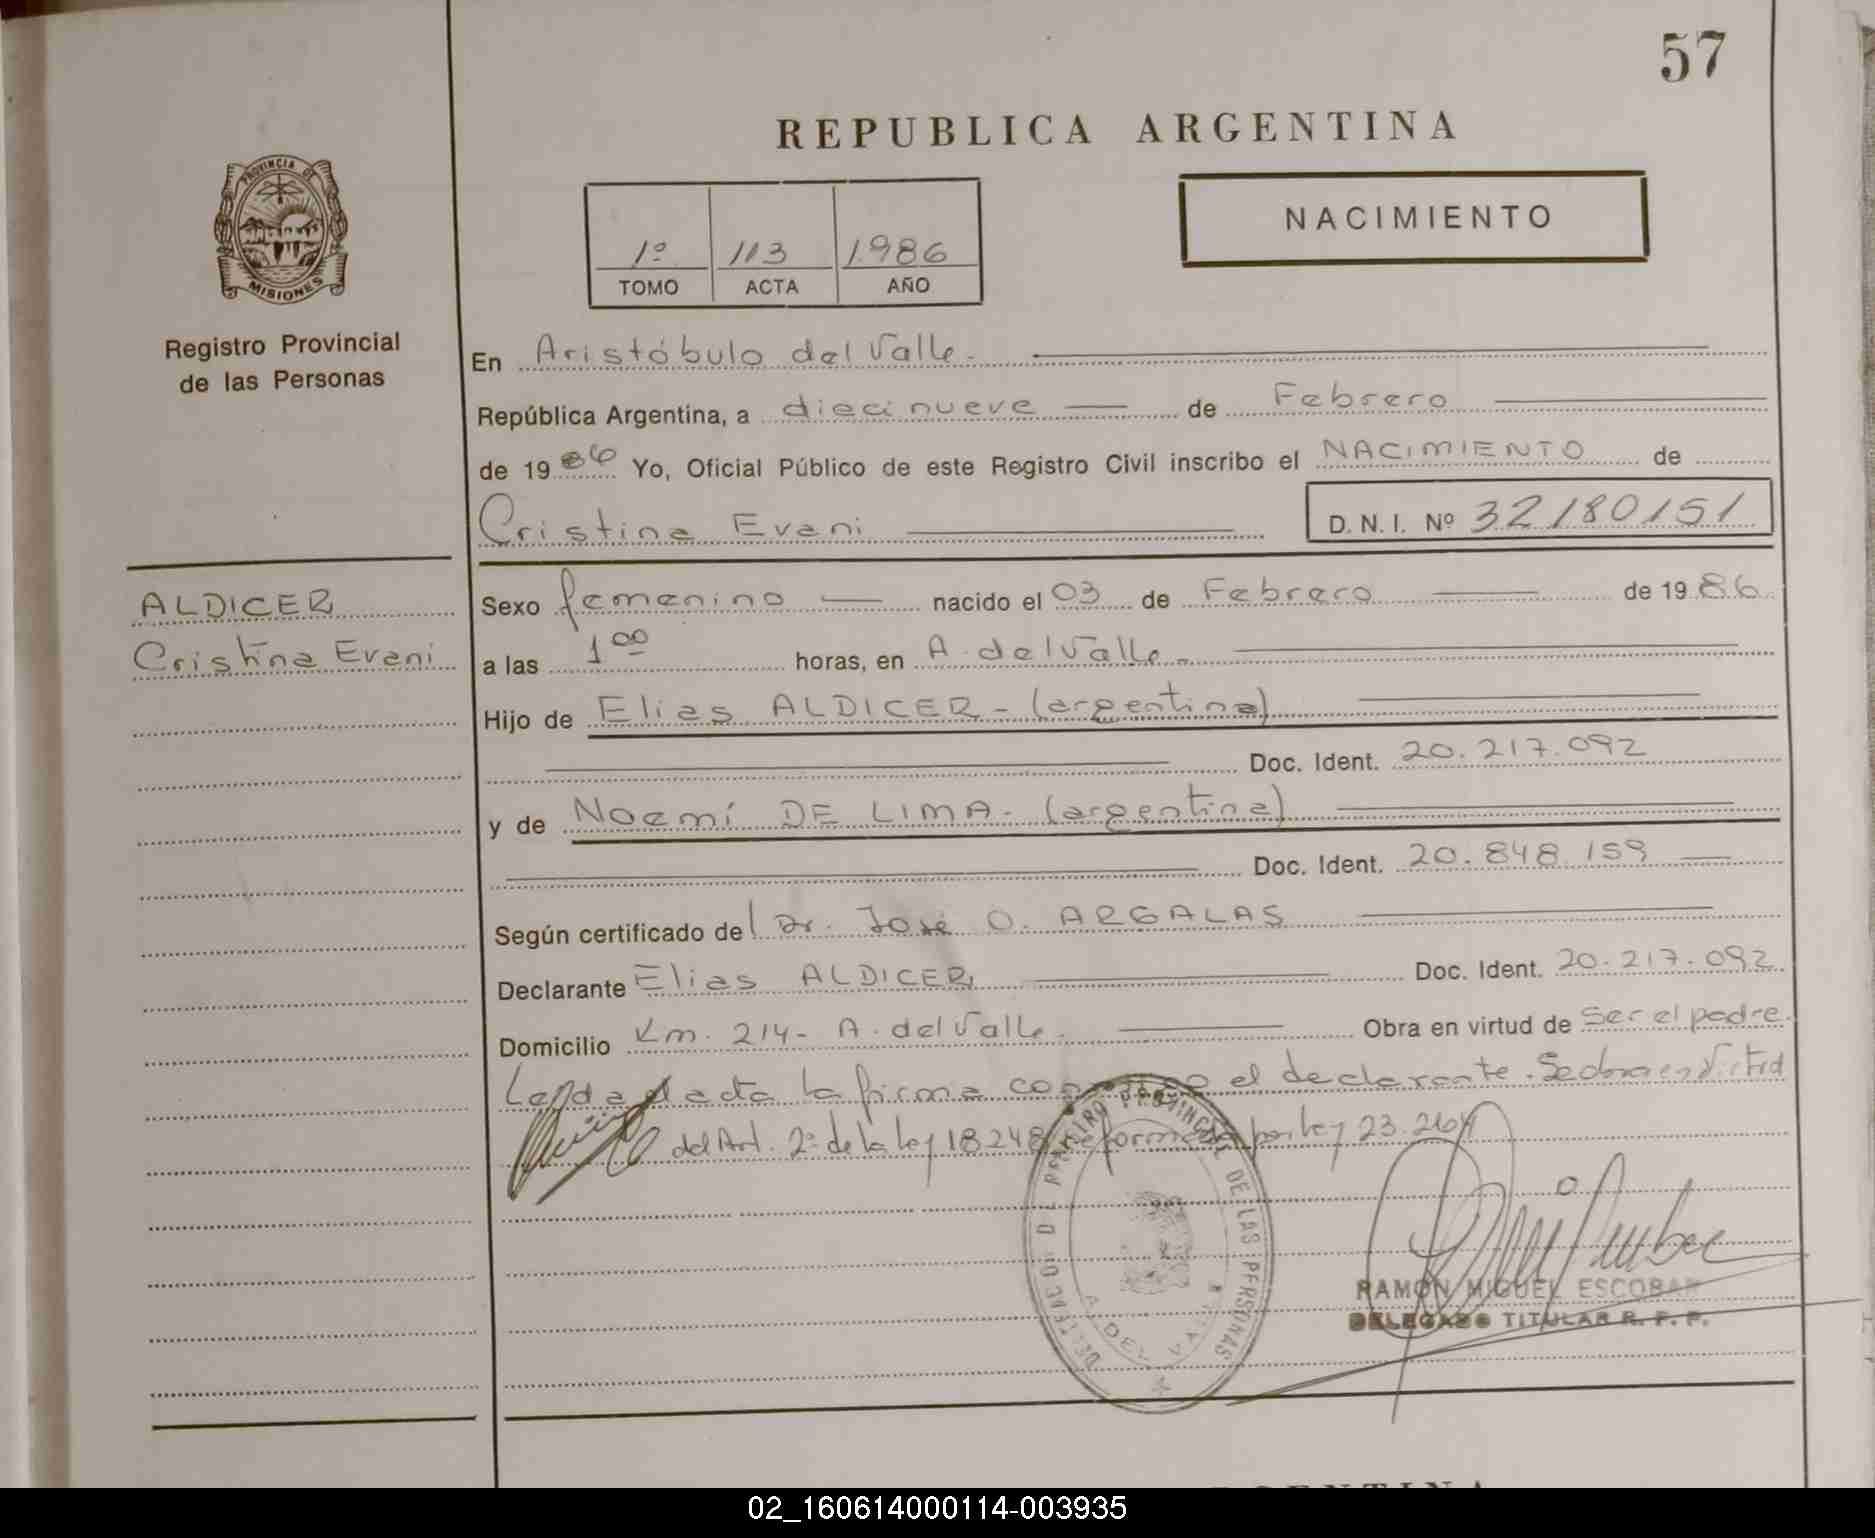 57
REPUBLICA ARGENTINA
PROVINCIA DE
MISIONES
Registro Provincial
de las Personas
1º 113 1986
TOMO ACTA AÑO
NACIMIENTO
En Aristóbulo del Valle.
República Argentina, a diecinueve de Febrero
de 1986 Yo, Oficial Público de este Registro Civil inscribo el NACIMIENTO de
Cristina Evani D. N. I. Nº 32180151
ALDICER
Cristina Evani
Sexo femenino nacido el 03 de Febrero de 1986
a las 1 00 horas, en A. del Valle.
Hijo de Elias ALDICER - (argentina)
Doc. Ident. 20.217.092
y de Noemí DE LIMA - (argentina)
Doc. Ident. 20.848.159
Según certificado del Dr. José O. ARGALAS
Declarante Elias ALDICER Doc. Ident. 20.217.092
Domicilio Km. 214 - A. del Valle. Obra en virtud de ser el padre.
Leída el acta la firma conmigo el declarante. Se obra en virtud
del Art. 2º de la ley 18248 reformada por ley 23.264
PROVINCIAL DE LAS PERSONAS
A. DEL VALLE
RAMON MIGUEL ESCOBAR
DELEGADO TITULAR R. P. P.
02_160614000114-003935